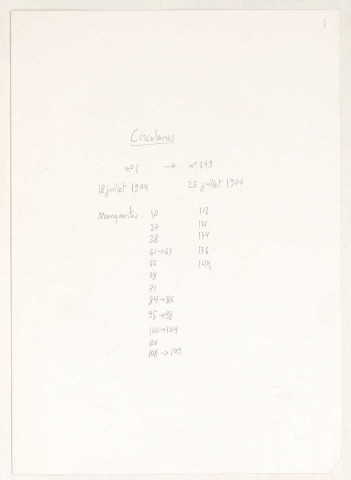 1
Circulaires
n°1 → n°149
18 juillet 1904 25 juillet 1904
Manquantes 10 112
20 121
28 134
61→63 136
66 144
68
71
84→86
95→98
100→104
106
108→109